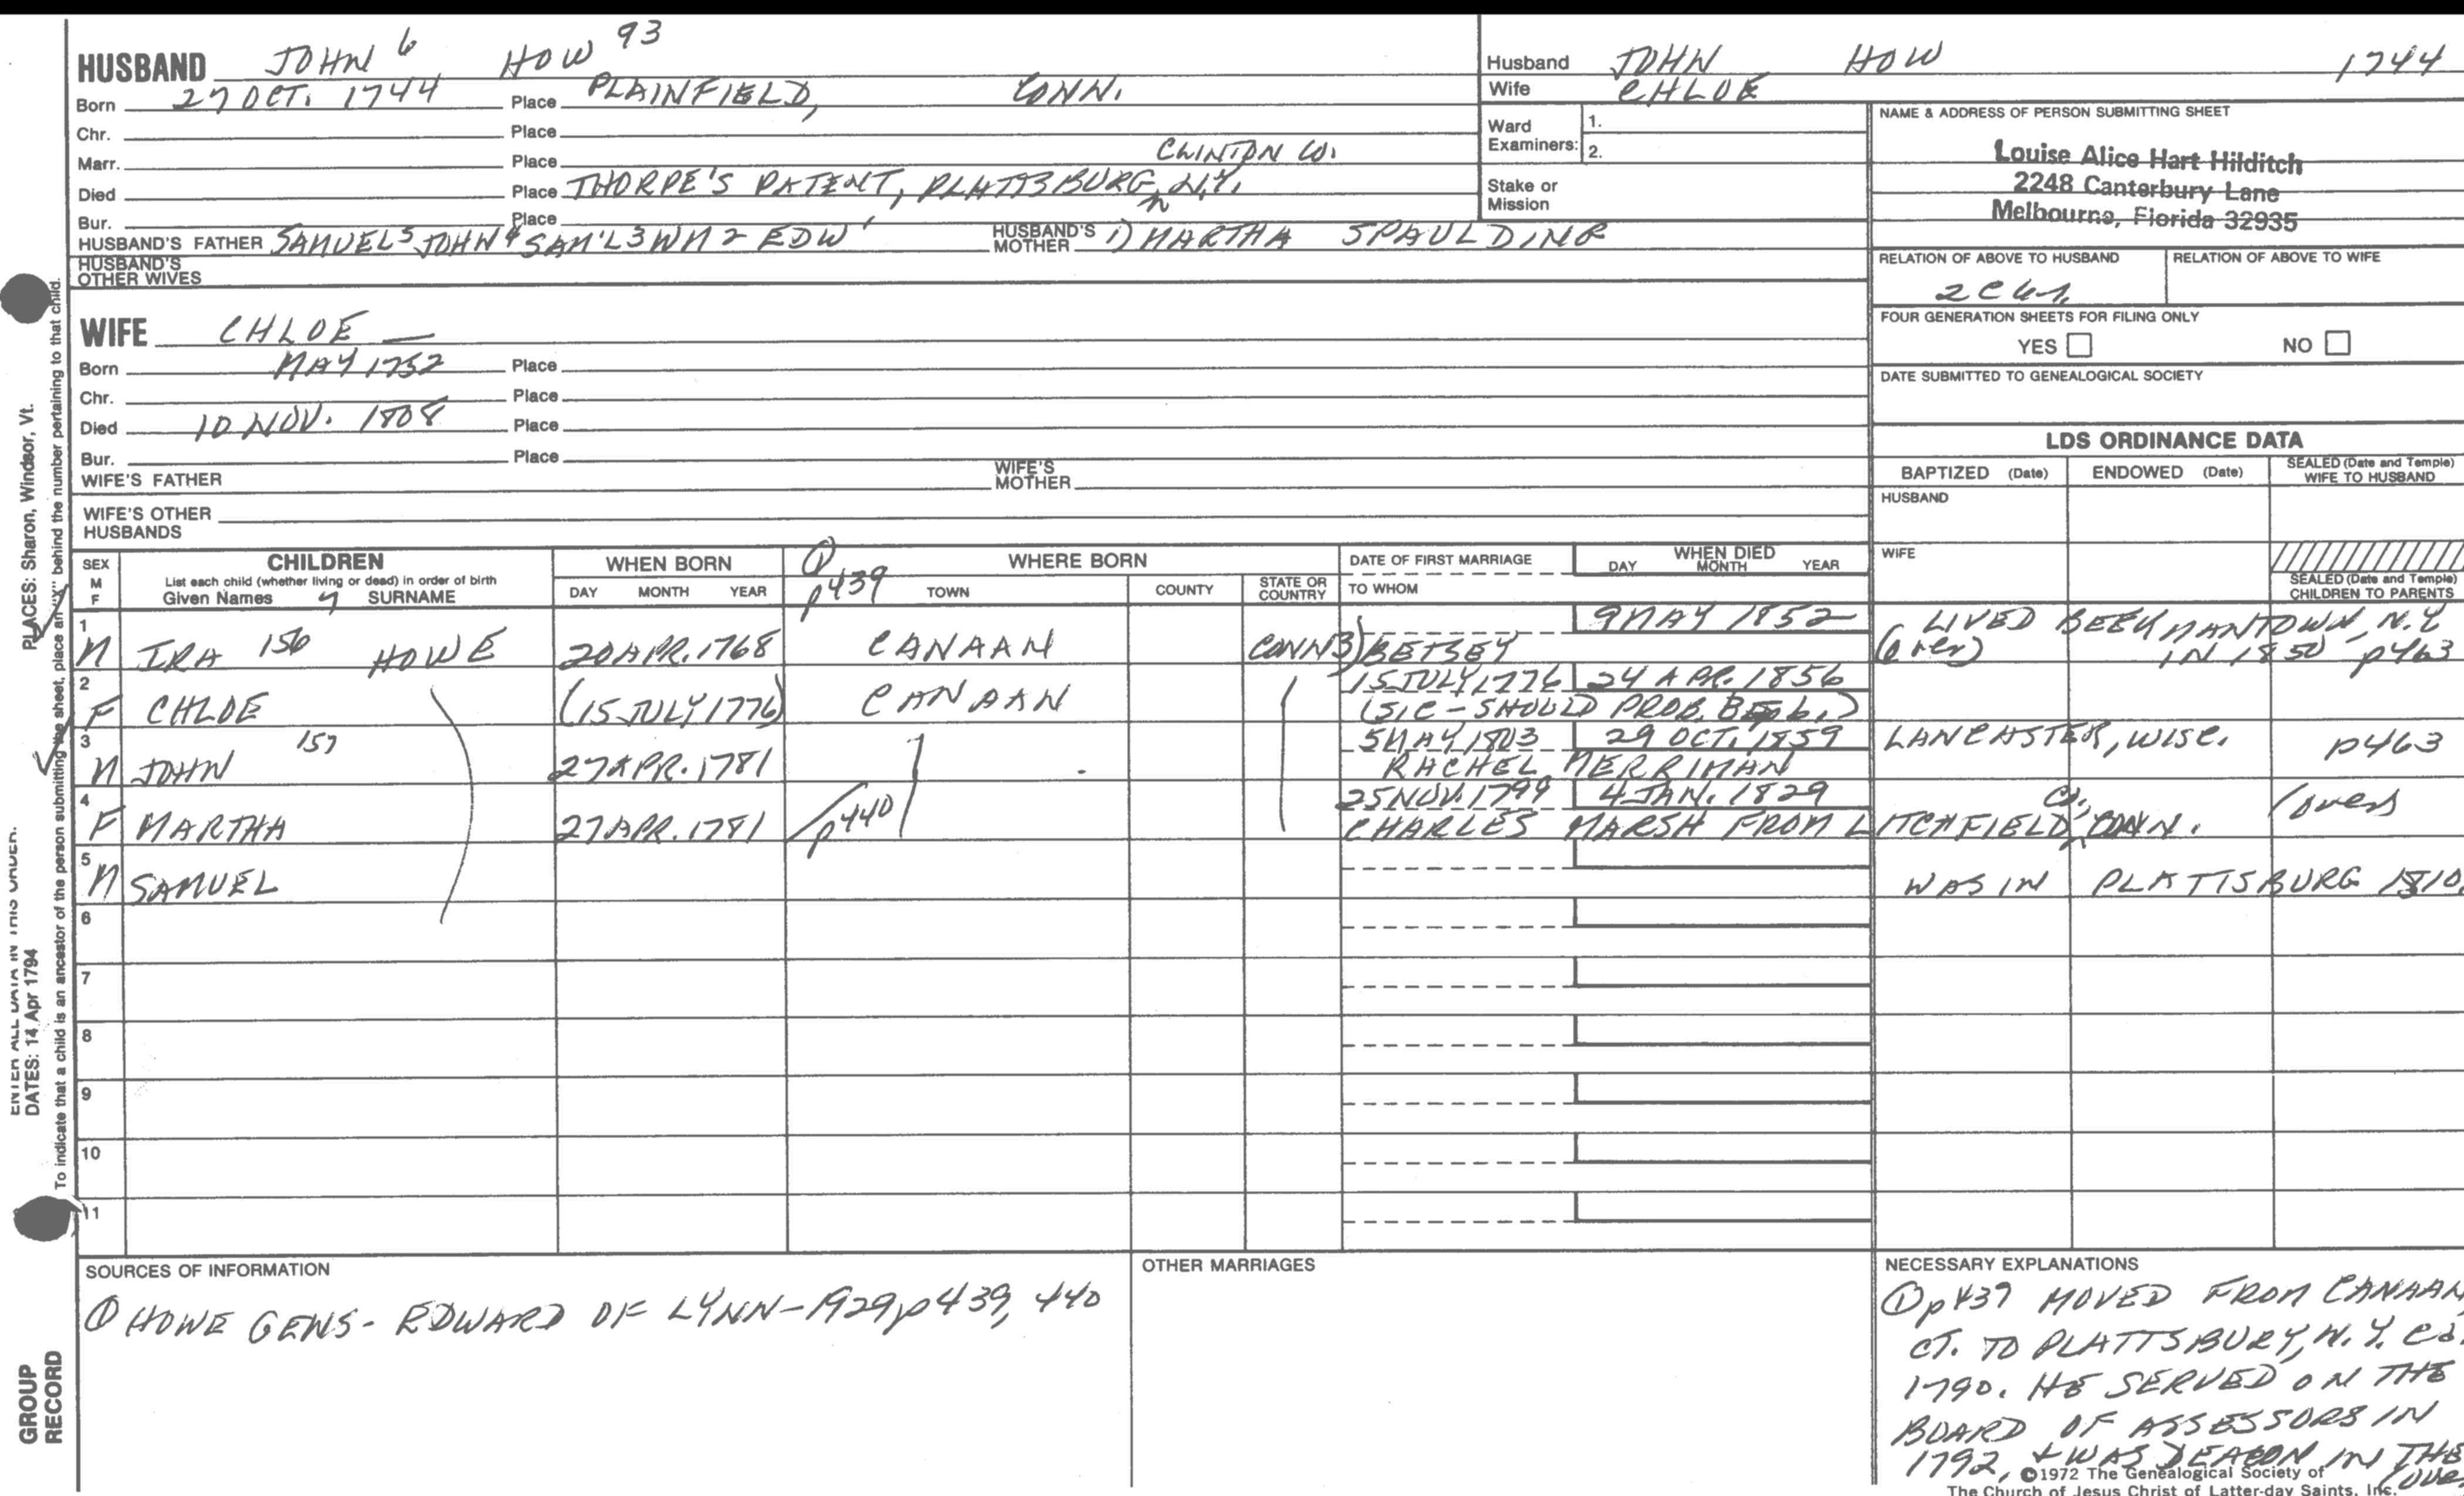 HUSBAND JOHN 6 HOW 93
Born 27 OCT. 1744 Place PLAINFIELD, CONN.
Chr. Place
Marr. Place CLINTON CO.
Died Place THORPE'S PATENT, PLATTSBURG, N.Y.
Bur. Place
HUSBAND'S FATHER SAMUEL 5 JOHN 4 SAM'L 3 WM 2 EDW 1 HUSBAND'S MOTHER 1) MARTHA SPAULDING
HUSBAND'S OTHER WIVES
WIFE CHLOE —
Born MAY 1752 Place
Chr. Place
Died 10 NOV. 1808 Place
Bur. Place
WIFE'S FATHER WIFE'S MOTHER
WIFE'S OTHER HUSBANDS
Husband JOHN HOW 1744
Wife CHLOE
Ward Examiners: 1.
2.
Stake or Mission
NAME & ADDRESS OF PERSON SUBMITTING SHEET
Louise Alice Hart Hilditch
2248 Canterbury Lane
Melbourne, Florida 32935
RELATION OF ABOVE TO HUSBAND RELATION OF ABOVE TO WIFE
FOUR GENERATION SHEETS FOR FILING ONLY
YES NO
DATE SUBMITTED TO GENEALOGICAL SOCIETY
LDS ORDINANCE DATA
BAPTIZED (Date) ENDOWED (Date) SEALED (Date and Temple) WIFE TO HUSBAND
HUSBAND
WIFE
SEALED (Date and Temple) CHILDREN TO PARENTS
SEX M F CHILDREN WHEN BORN ① p439 WHERE BORN DATE OF FIRST MARRIAGE WHEN DIED
List each child (whether living or dead) in order of birth
Given Names 7 SURNAME DAY MONTH YEAR TOWN COUNTY STATE OR COUNTRY TO WHOM DAY MONTH YEAR
1 M IRA 156 HOWE 20 APR. 1768 CANAAN CONN 3) BETSEY 9 MAY 1852 LIVED BEEKMANTOWN, N.Y.
(over) IN 1850 p463
2 F CHLOE (15 JULY 1776) CANAAN 15 JULY 1776 24 APR. 1856
(SIC - SHOULD PROB. BE b.)
3 M JOHN 157 27 APR. 1781 5 MAY 1803 29 OCT. 1859 LANCASTER, WISC. p463
RACHEL MERRIMAN
4 F MARTHA 27 APR. 1781 p440 25 NOV. 1799 4 JAN. 1829 (over)
CHARLES MARSH FROM LITCHFIELD CO. CONN.
5 M SAMUEL WAS IN PLATTSBURG 1810.
6
7
8
9
10
11
SOURCES OF INFORMATION
① HOWE GENS - EDWARD OF LYNN - 1929, p439, 440
OTHER MARRIAGES
NECESSARY EXPLANATIONS
① p439 MOVED FROM CANAAN,
CT. TO PLATTSBURY, N.Y. ca.
1790. HE SERVED ON THE
BOARD OF ASSESSORS IN
1792, + WAS DEACON IN THE
(over
©1972 The Genealogical Society of
The Church of Jesus Christ of Latter-day Saints, Inc.
PLACES: Sharon, Windsor, Vt.
ENTER ALL DATA IN THIS ORDER:
DATES: 14 Apr 1794
To indicate that a child is an ancestor of the person submitting the sheet, place an "X" behind the number pertaining to that child.
GROUP
RECORD